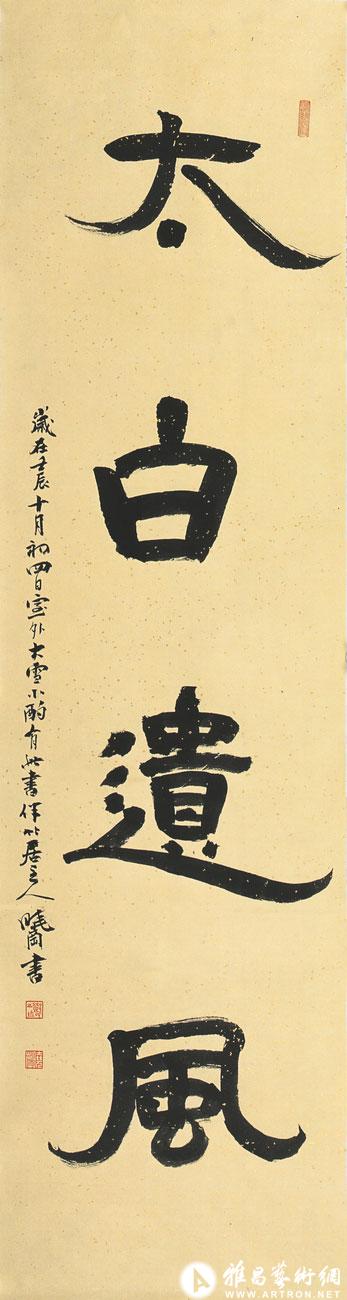 太白遺風
歲在壬辰十月初四日窗外大雪小酌有此書伴竹居主人曉岡書
雅昌藝術網
WWW.ARTRON.NET